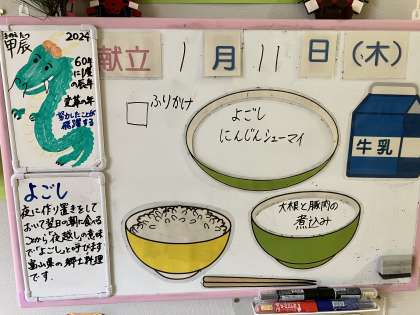 きのえたつ
甲辰 2024
60年
に1度
の辰年
変革の年
努力したことが
飛躍する
献立 1月11日(木)
ふりかけ
よごし
にんじんシューマイ
牛乳
大根と豚肉の
煮込み
よごし
夜に作り置きをして
おいて翌日の朝に食べる
ことから「夜越し」の意味
で「よごし」と呼びます
富山県の郷土料理
です。